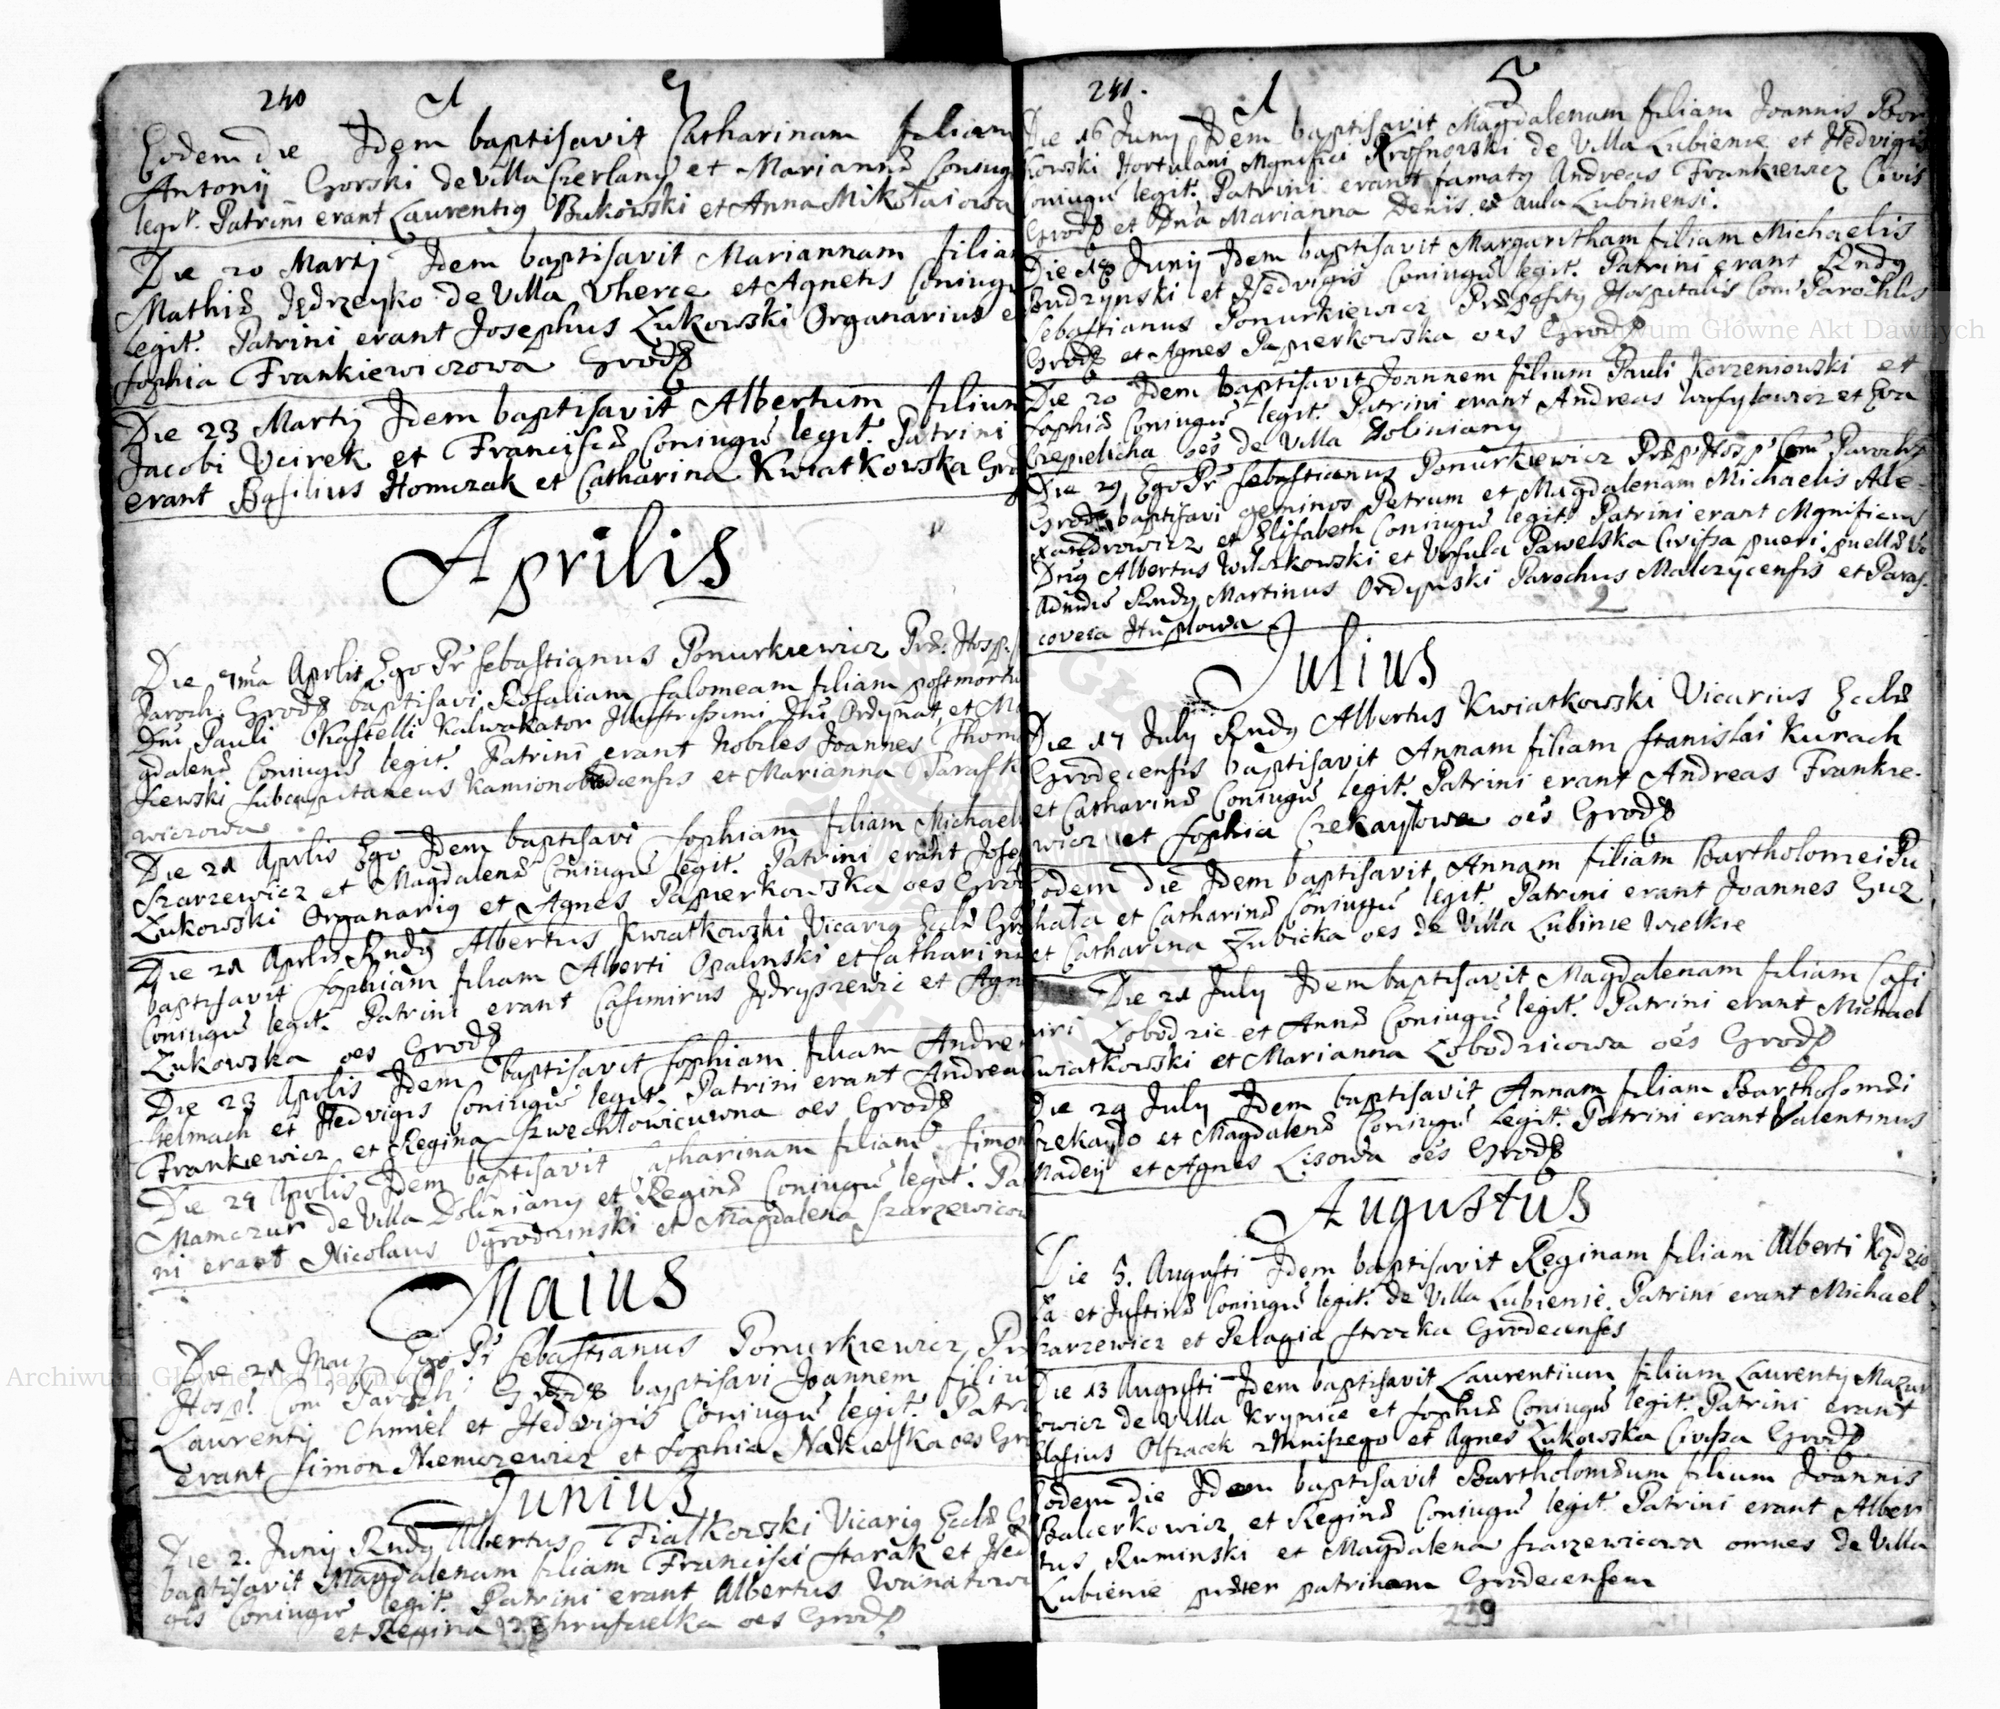 240 1 7
Eodem die Idem baptisavit Catharinam filiam
Antonij Gorski de Villa Czerlany et Mariannæ Coniug
legit. Patrini erant Laurentig Bukowski et Anna Mikołaiowa
Die 20 Martij Idem baptisavit Mariannam filiam
Mathiæ Jędrzeyko de Villa Vherce et Agnetis Coniugu
Legit. Patrini erant Josephus Łukowski Organarius e
Sophia Frankiewiczowa Grods
Die 23 Martij Idem baptisavit Albertum filium
Jacobi Vcirek et Franciscæ Coniugū legit. Patrini
erant Basilius Homczak et Catharina Kwiatkowska Grod
Aprilis
Die 7ma Aprilis Ego Pr Sebastianus Ponurkiewicz Præ. Hosp.
Paroch. Grods baptisavi Rosaliam Salomeam filiam post mortu
Dni Pauli Kalwakator Illustrissimi Dni Ordynat, et Ma
gdalenæ Coniugū legit. Patrini erant Nobiles Joannes Thom
kiewski Subcapitaneus et Marianna Parafk
wiczowa
Die 21 Aprilis Ego Idem baptisavi Sophiam filiam Michael
Szarzewicz et Magdalenæ Coniugū legit. Patrini erant Jose
Łukowski Organarig et Agnes Papierkowska oes Grod
Die 21 Aprilis Rndg Albertus Kwiatkowski Vicarig Eccl Gro
baptisavit Sophiam filiam Alberti Opalinski et Catharinæ
Coniugū legit. Patrini erant Casimirus Jędryszewic et Agn
Zukowska oes Grods
Die 23 Aprilis Idem baptisavit Sophiam filiam Andre
Helmach et Hedvigis Coniugū legit. Patrini erant Andrea
Frankiewicz et Regina Szwechłowicuwna oes Grods
Die 29 Aprilis Idem baptisavit Catharinam filiam Simon
Mamczur de Villa Doliniany et Reginæ Coniugū legit. Pa
ni erant Nicolaus Ogrodzinski et Magdalena Szarzewicow
Maius
Die 21 Maij Ego Pr Sebastianus Ponurkiewicz Pr
Hospl Com Paroch Grods baptisavi Joannem filiu
Laurentij Chmiel et Hedvigis Coniugū legit. Patri
erant Simon Niemczewicz et Sophia Nakielska oes Gro
Junius
Die 2. Junij Rndg Albertus Fialkowski Vicarig Eccl G
baptisavit Magdalenam filiam Francisci Starak et Hed
gis Coniugū legit. Patrini erant Albertus
et Regina oes Grods
241. 1 5
Die 16 Junij Idem baptisavit Magdalenam filiam Joannis Bor
kowski Hortulani Mgnifici Krosnowski de Villa Lubienie et Hedvigis
Coniugū legit. Patrini erant famatg Andreas Frankiewicz Civis
Grods et Dna Marianna Denis ex aula Lubinensi.
Die 18 Junij Idem baptisavit Margaritham filiam Michaelis
Budzynski et Hedvigis Coniugū legit. Patrini erant Rndg
Sebastianus Ponurkiewicz Præpositg Hospitalis Com Parochls
Grods et Agnes Papierkowska oes Grods
Die 20 Idem baptisavit Joannem filium Pauli Korzeniouski et
Sophiæ Coniugū legit. Patrini erant Andreas Wasylowicz et Eva
Crepielicha oes de Villa Doliniany
Die 29 Ego Pr Sebastianus Ponurkiewicz Præp Hosp Com Paroch
Grods baptisavi geminos Petrum et Magdalenam Michaelis Ale
xandrowicz et Elisabeth Coniugū legit. Patrini erant Mgnificus
Dnig Albertus Wilczkowski et Vrsula Pawelska Civissa pueri, puellæ ve
Rndg Martinus Ordynski Parochus Malczycensis et Paras
coveia Huplowa
2
Julius
Die 17 July Rndg Albertus Kwiatkowski Vicarius Ecclæ
Grodecensis baptisavit Annam filiam Stanislai Kurach
et Catharinæ Coniugū legit. Patrini erant Andreas Frankie
wicz et Sophia Czekaytowa oes Grods
Eodem die Idem baptisavit Annam filiam Bartholomei Pu
chała et Catharinæ Coniugū legit. Patrini erant Joannes Guz
et Catharina Zubicka oes de Villa Lubinie Wielkie
Die 21 July Idem baptisavit Magdalenam filiam Casi
miri Łobodzic et Annæ Coniugū legit. Patrini erant Michael
Kwiatkowski et Marianna Łobodzicowa oes Grods
Die 29 July Idem baptisavit Annam filiam Bartholomæi
Czekaylo et Magdalenæ Coniugū legit. Patrini erant Valentinus
Madeij et Agnes Lisowa oes Grods
Augustus
Die 5. Augusti Idem baptisavit Reginam filiam Alberti Kędzio
ła et Justinæ Coniugū legit. de Villa Lubienie. Patrini erant Michael
Szarzewicz et Pelagia Strocka Grodecenses
Die 13 Augusti Idem baptisavit Laurentium filium Laurentij Mazur
owicz de Villa Krynice et Sophiæ Coniugū legit. Patrini erant
Blasius et Agnes Łukowska Civissa Grods
Eodem die Idem baptisavit Bartholomæum filium Joannis
Balcerkowicz et Reginæ Coniugū legit. Patrini erant Alber
tus Ruminski et Magdalena Szarzewicowa omnes de Villa
Lubienie præter patrinam Grodecensem
239
Archiwum Główne Akt Dawnych
Archiwum Główne Akt Dawnych